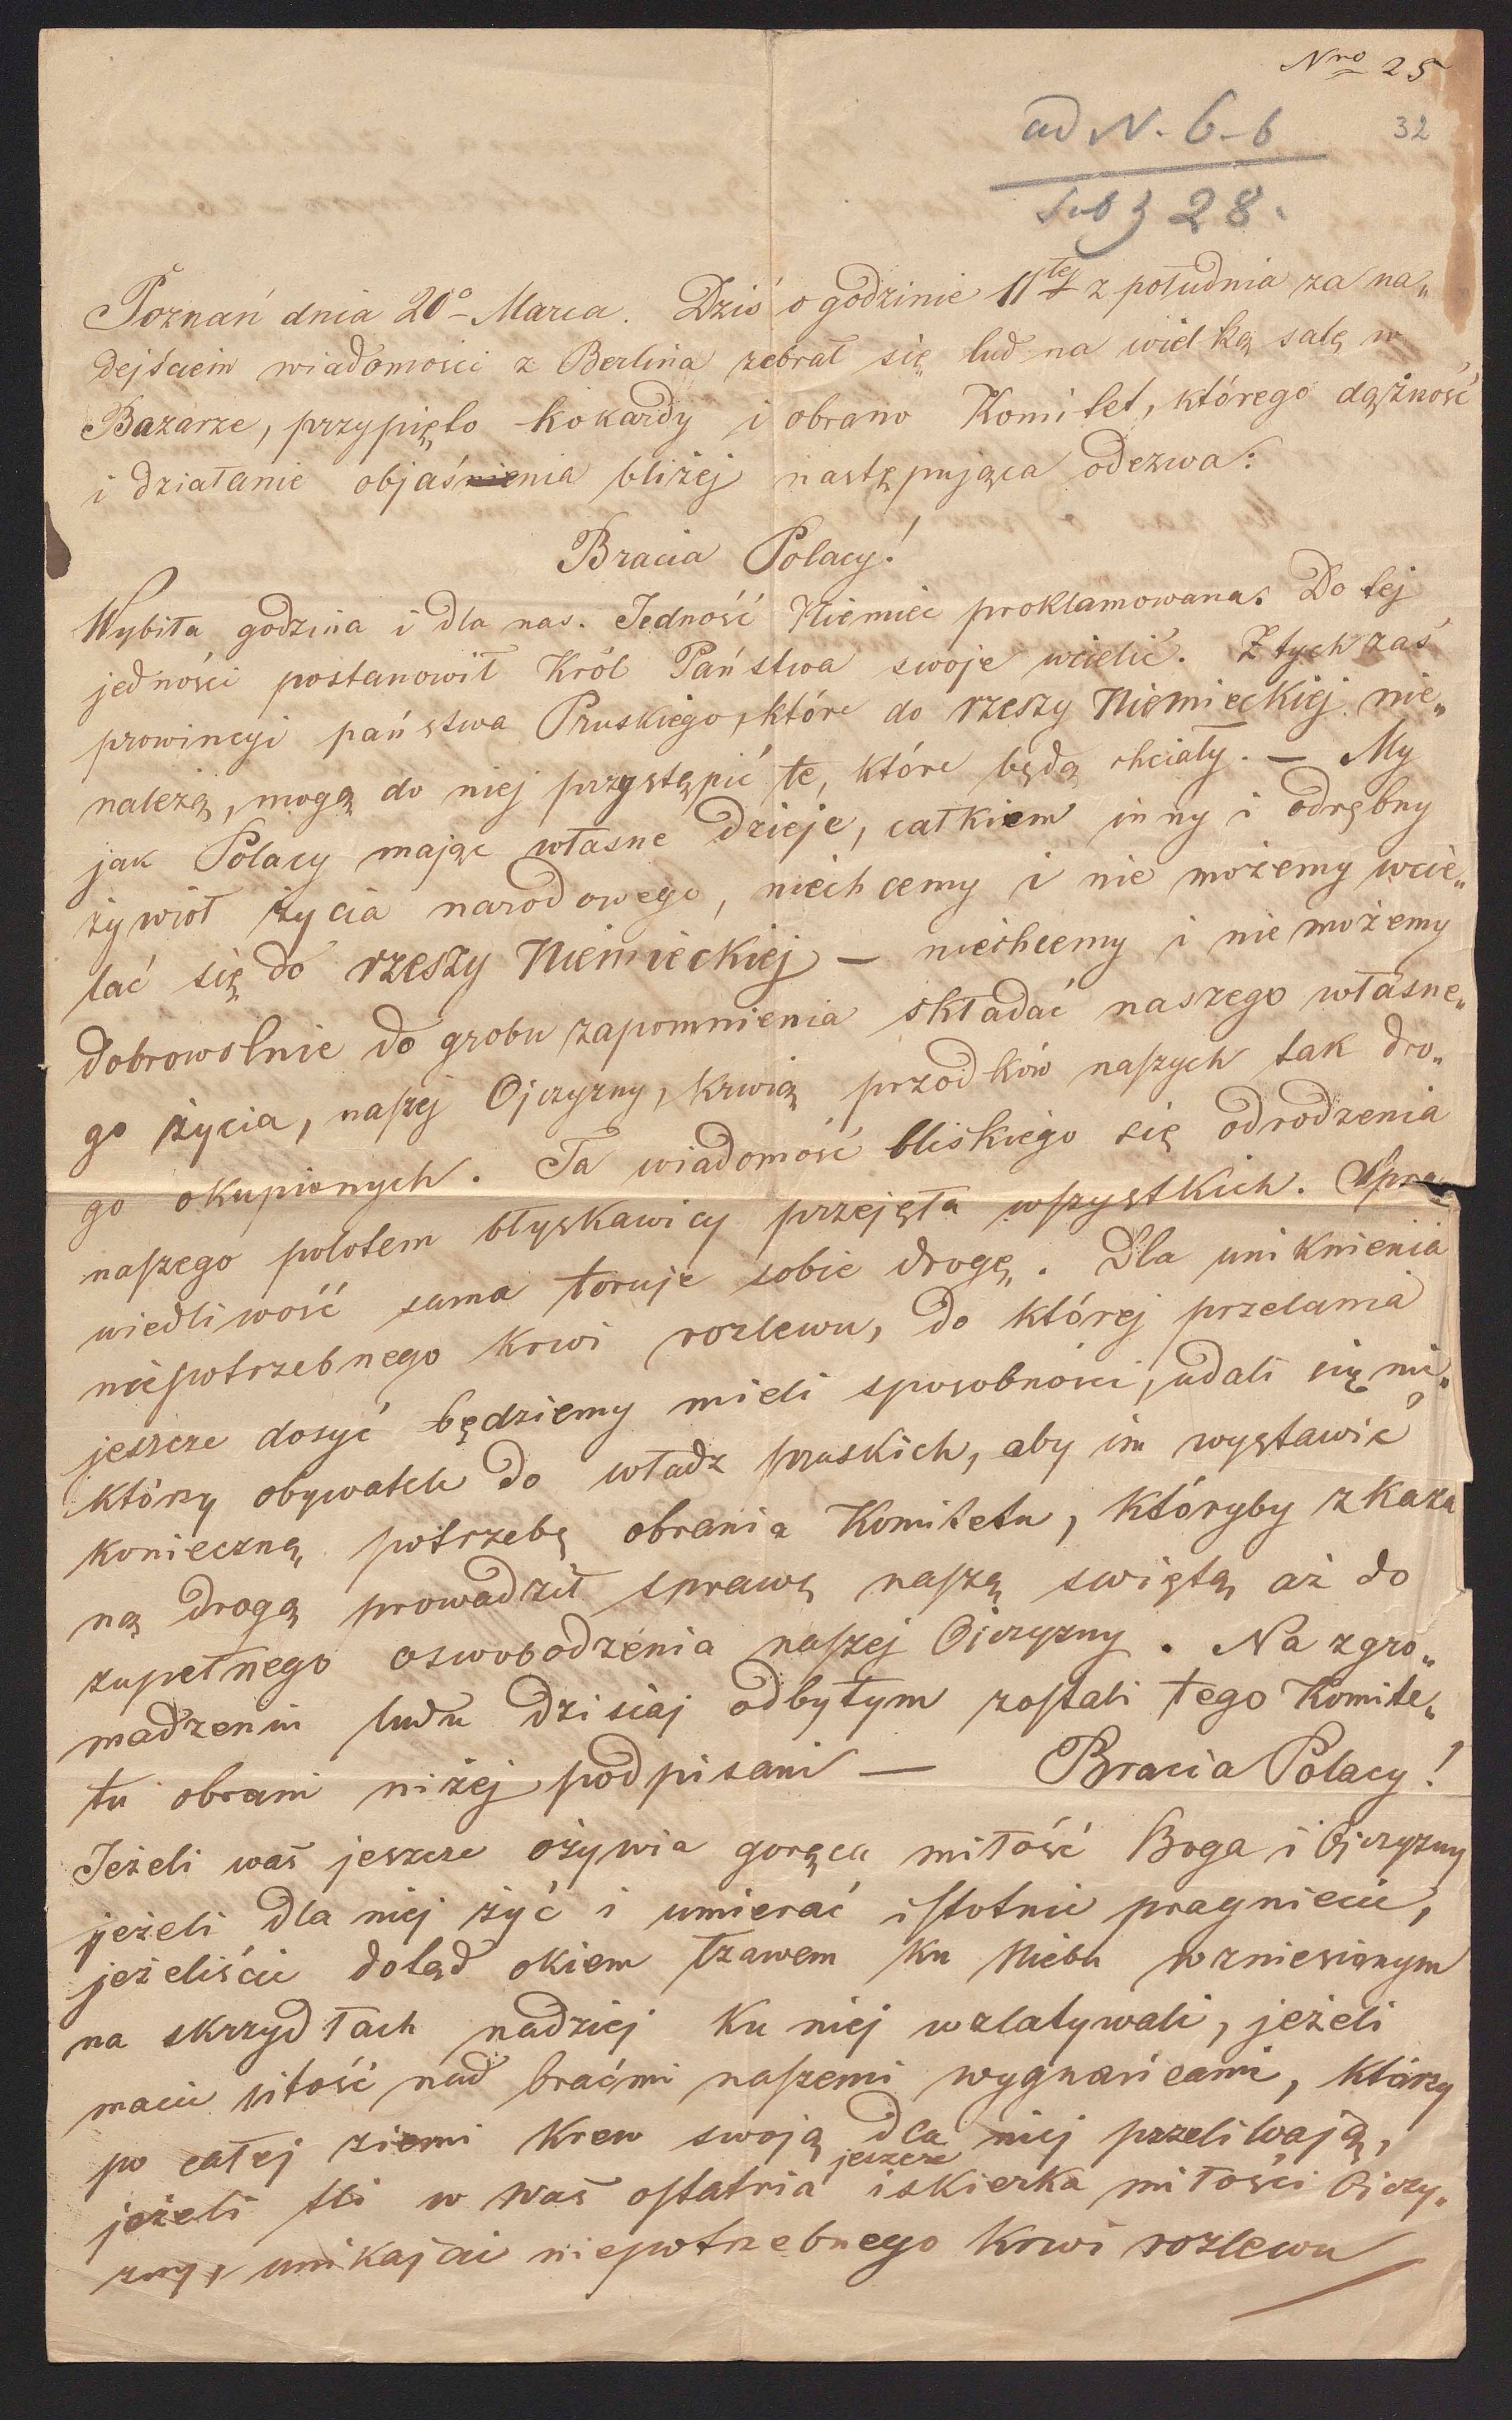 Nro 25
32
ad N. 6-6
sub 3 28.
Poznań dnia 20o Marca. Dziś o godzinie 11tej z południa za na„
dejściem wiadomości z Berlina zebrał się lud na wielką salę w
Bazarze, przypięto kokardy i obrano Komitet, którego dążność
i działanie objaśnia bliżej następująca odezwa:
Bracia Polacy!
Wybiła godzina i dla nas. Jedność Niemiec proklamowana. Do tej
jedności postanowił Król Państwa swoje wcielić. Z tych zaś
prowincyi państwa Pruskiego, które do rzeszy Niemieckiej nie„
należą, mogą do niej przystąpić te, które będą chciały. — My
jak Polacy mając własne dzieje, całkiem inny i odrębny
żywioł życia narodowego, niechcemy i nie możemy wcie„
lać się do rzeszy Niemieckiej — niechcemy i nie możemy
dobrowolnie do grobu zapomnienia składać naszego własne„
go życia, naszej Ojczyzny, krwią przodków naszych tak dro„
go okupionych. Ta wiadomość bliskiego się odrodzenia
naszego polotem błyskawicy przejęła wszystkich. Spra„
wiedliwość sama toruje sobie drogę. Dla uniknienia
niepotrzebnego krwi rozlewu, do której przelania
jeszcze dosyć będziemy mieli sposobności, udali się nie„
którzy obywatele do władz pruskich, aby im wystawić
konieczną potrzebę obrania Komitetu, któryby zkaza
ną drogą prowadził sprawę naszą świętą aż do
zupełnego oswobodzenia naszej Ojczyzny. Na zgro„
madzeniu ludu dzisiaj odbytym zostali tego Komite„
tu obrani niżej podpisani — Bracia Polacy!
Jeżeli was jeszcze ożywia gorąca miłość Boga i Ojczyzny
jeżeli dla niej żyć i umierać istotnie pragniecie,
jeżeliście doląd okiem łzawem ku Niebu wzniesionym
na skrzydłach nadziej ku niej wzlatywali, jeżeli
macie litość nad braćmi naszemi wygnańcami, którzy
po całej ziemi krew swoją dla niej przeliwają,
jeżeli tli w was ostatnia jeszcze iskierka miłości Ojczy„
zny, unikajcie niepotrzebnego krwi rozlewu